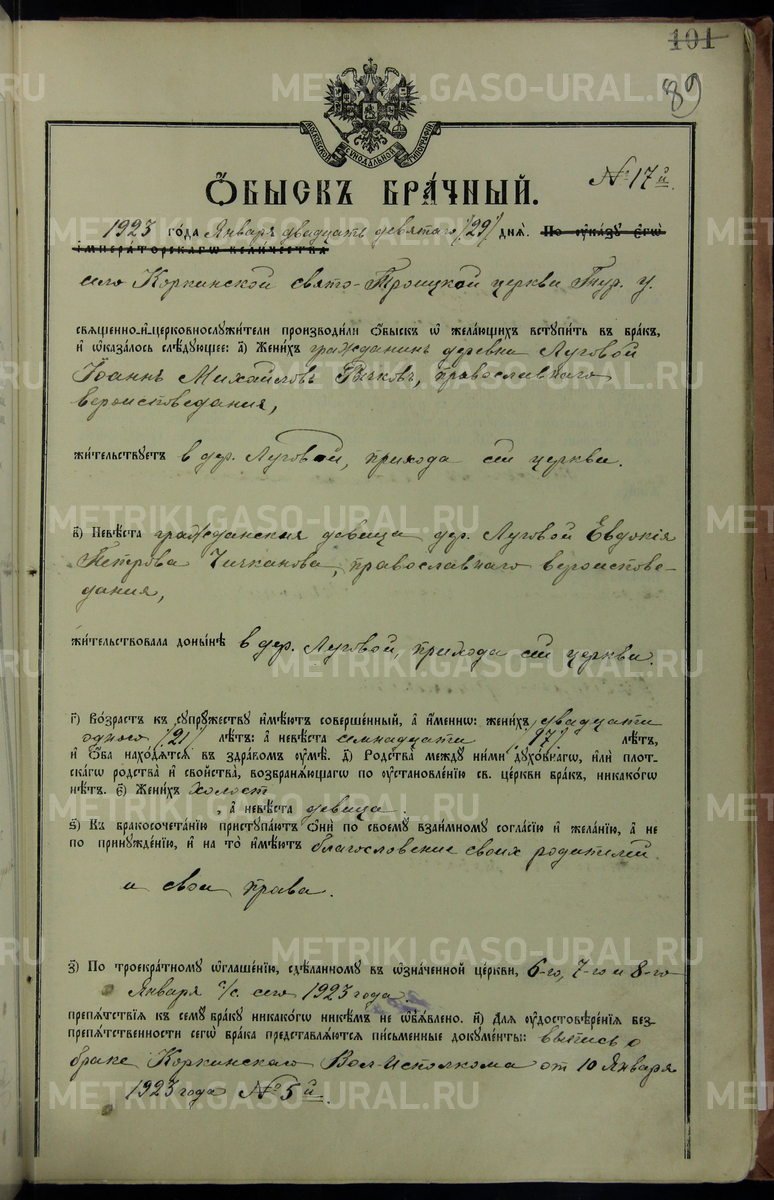 101
89
МОСКОВСКОЙ СѴНОДАЛЬНОЙ ТИПОГРАФІИ
№ 17й.
Ѻ҆БЫСКЪ БРА́ЧНЫЙ.
1923 го́да Января двадцать девятаго /29/ днѧ̀. По ᲂу҆ка́зꙋ є҆гѡ̀
і҆мпера́торскагѡ вели́чества
село Коркинской свято-Троицкой церкви Тур. у.
свѧще́нно-и҆-церковнослꙋжи́тели производи́ли ѻ҆́быскъ ѡ҆ жела́ющихъ встꙋпи́ть въ бра́къ,
и҆ ѡ҆каза́лось слѣ́дꙋющее: а҃) Жени́хъ гражданинъ деревни Луговой
Іоаннъ Михайловъ Бычковъ, православнаго
вероисповедания,
жи́тельствꙋетъ в дер. Луговой, прихода сей церкви.
в҃) Невѣ́ста гражданская девица дер. Луговой Евдокія
Петрова Чичканова, православнаго вероиспове-
дания,
жи́тельствовала доны́нѣ в дер. Луговой, прихода сей церкви.
г҃) Во́зрастъ къ сꙋпрꙋ́жествꙋ и҆мѣ́ютъ соверше́нный, а҆ и҆́меннѡ: жени́хъ двадцати
одного /21/ лѣ́тъ: а҆ невѣ́ста семнадцати /17/ лѣ́тъ,
и҆ ѻ҆́ба нахо́дѧтсѧ въ здра́вомъ ᲂу҆мѣ̀. д҃) Родства̀ междꙋ ни́ми дꙋхо́внагѡ, и҆лѝ пло́т-
скагѡ родства̀ и҆ сво́йства, возбранѧ́ющагѡ по ᲂу҆становле́нію св. це́ркви бра́къ, никако́гѡ
нѣ́тъ. є҃) Жени́хъ холост
, а҆ невѣ́ста девица.
ѕ҃) Къ бракосочета́нію пристꙋпа́ютъ ѻ҆нѝ по своемꙋ̀ взаи́мномꙋ согла́сію и҆ жела́нію, а҆ не
по принꙋжде́нію, и҆ на то̀ и҆мѣ́ютъ благословение своих родителей
и свои права.
з҃) По троекра́тномꙋ ѡ҆глаше́нію, сдѣ́ланномꙋ въ ѡ҆зна́ченной це́ркви, 6-го, 7-го и 8-го
Января с/с. сего 1923 года.
препѧ́тствіѧ къ семꙋ̀ бра́кꙋ никако́гѡ никѣ́мъ не ѡ҆б̾ѧ́влено. и҃) Длѧ̀ ᲂу҆достовѣре́нїѧ без-
препѧ́тственности сегѡ̀ бра́ка представлѧ́ютсѧ пи́сьменные докꙋме́нты: выпись о
браке Коркинскаго Вол-Исполкома от 10 Января
1923 года № 5й.
METRIKI.GASO-URAL.RU